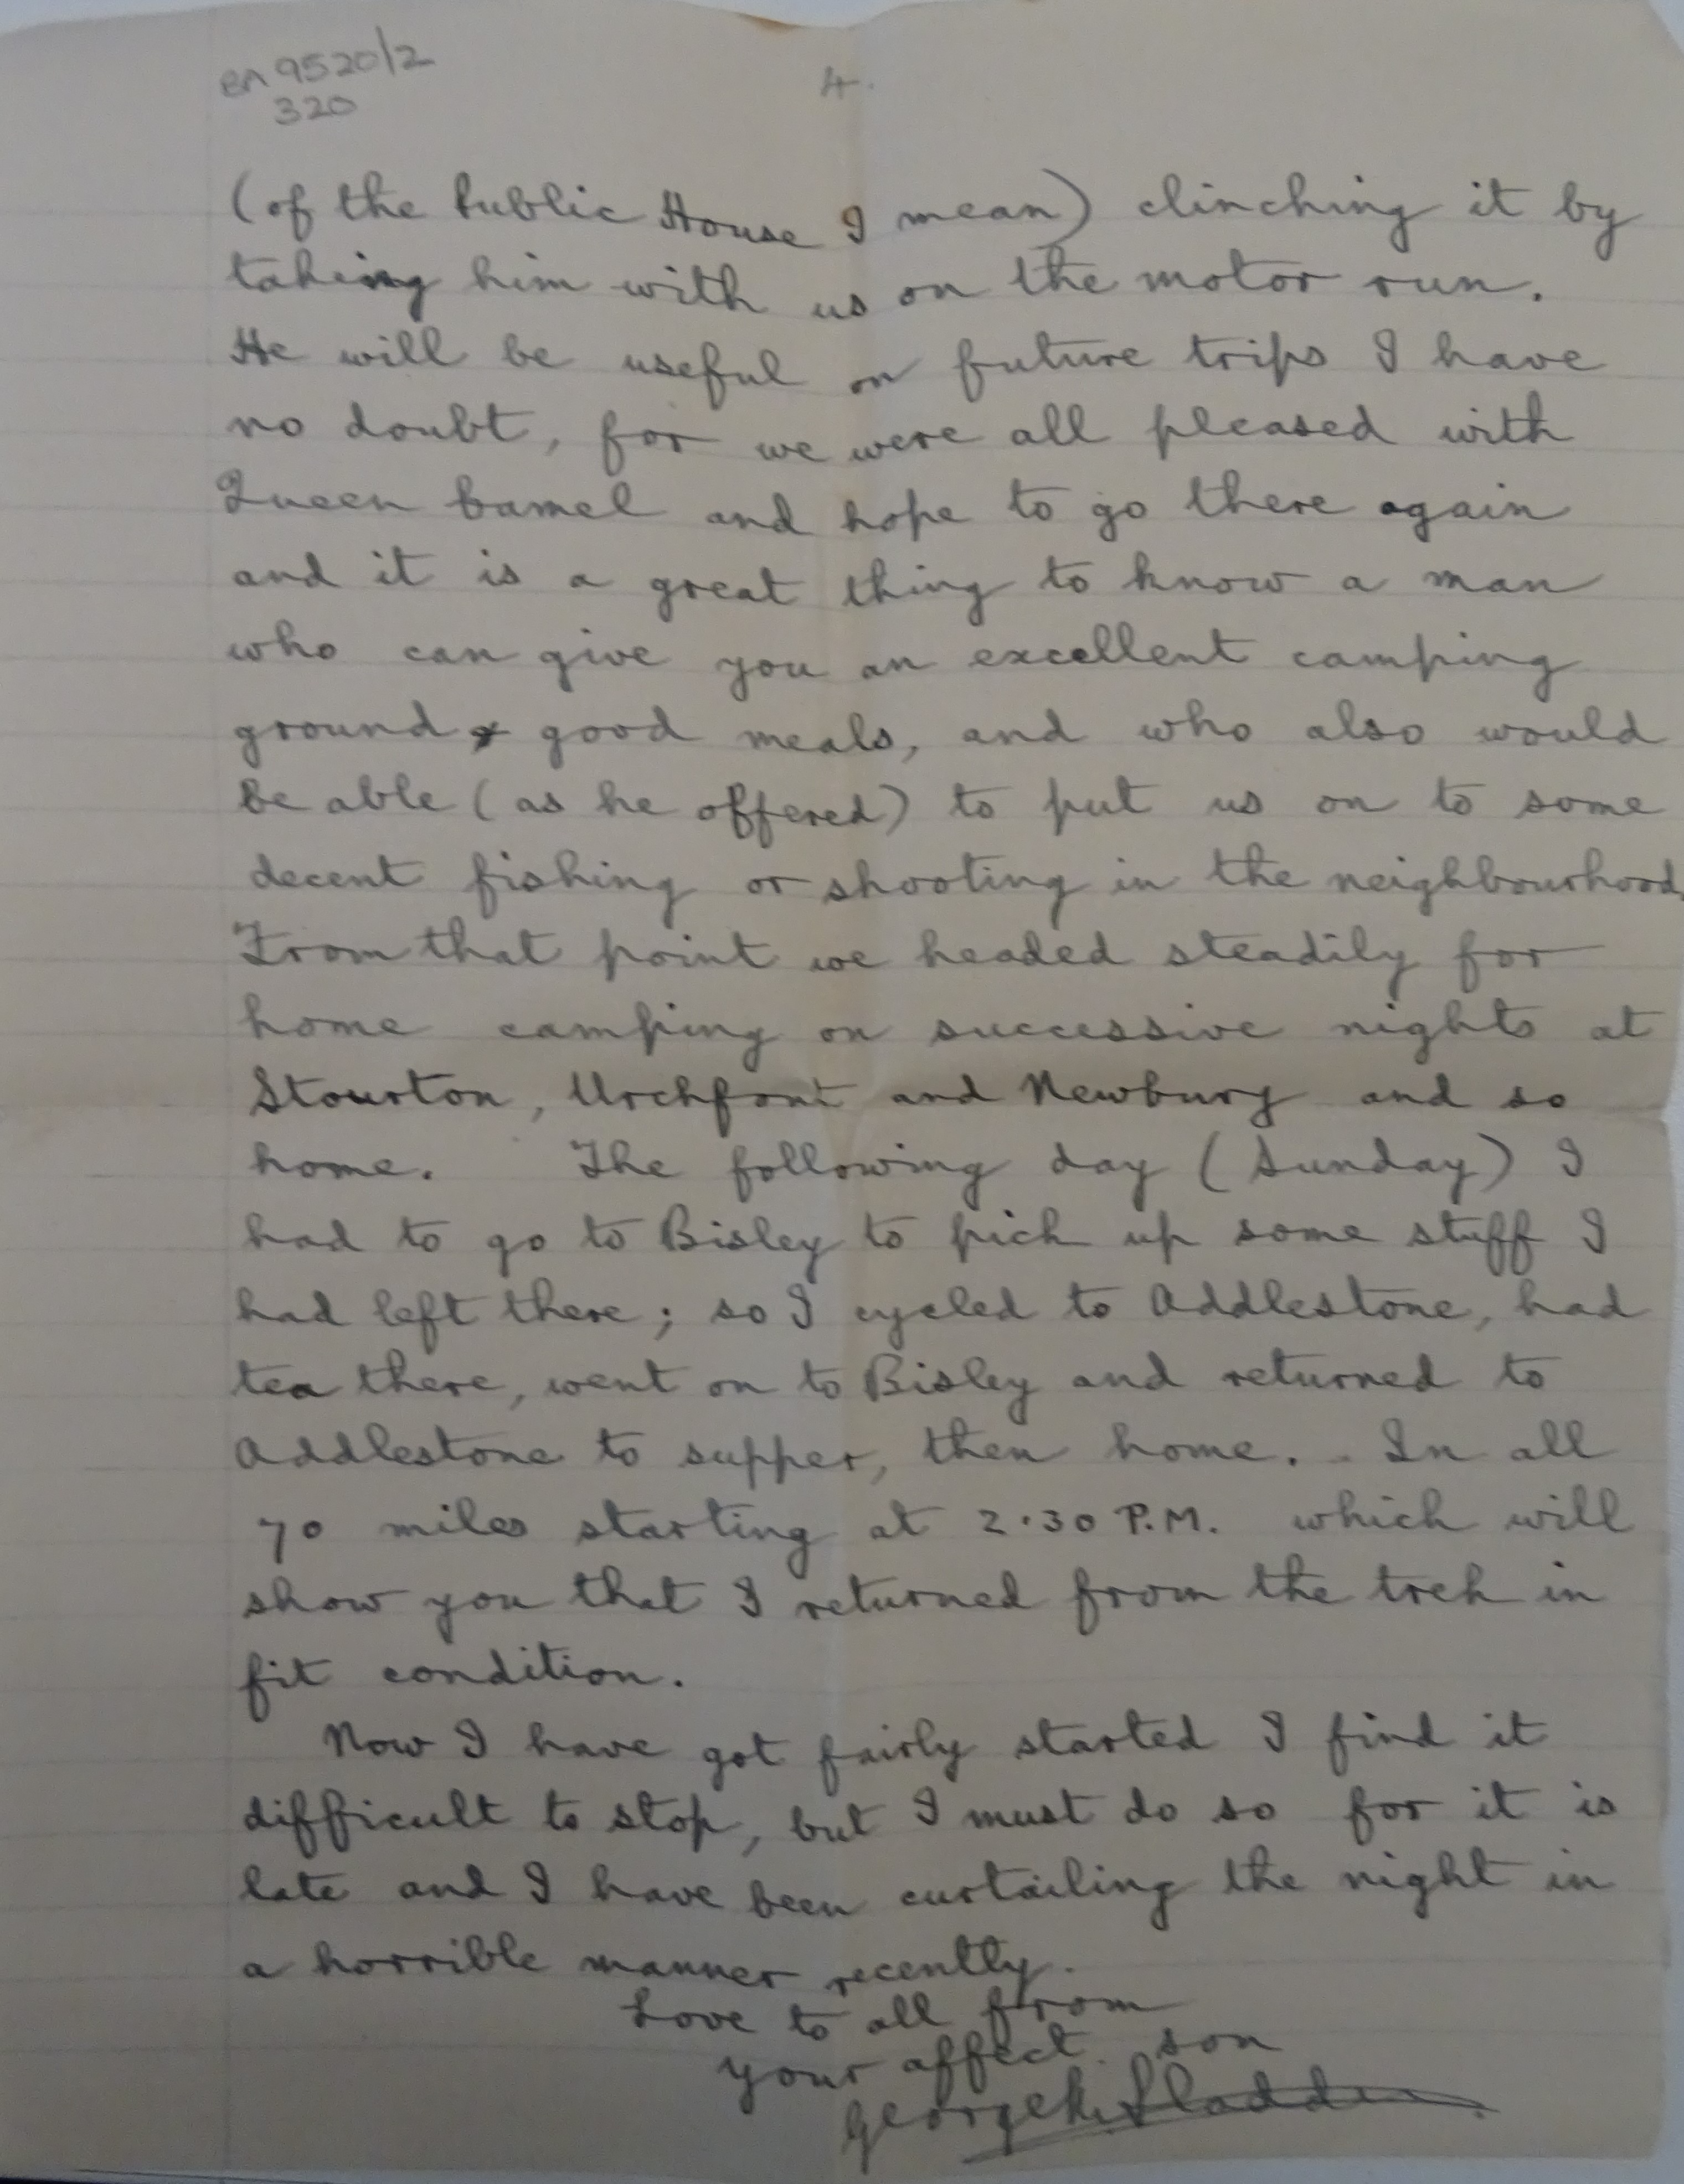 BA 9520/2
320
4.
(of the Public House I mean) clinching it by
taking him with us on the motor run.
He will be useful on future trips I have
no doubt, for we were all pleased with
Queen Camel and hope to go there again
and it is a great thing to know a man
who can give you an excellent camping
ground & good meals, and who also would
be able (as he offered) to put us on to some
decent fishing or shooting in the neighbourhood.
From that point we headed steadily for
home camping on successive nights at
Stourton, Urchfont and Newbury and so
home. The following day (Sunday) I
had to go to Bisley to pick up some stuff I
had left there; so I cycled to Addlestone, had
tea there, went on to Bisley and returned to
Addlestone to supper, then home. In all
70 miles starting at 2.30 P.M. which will
show you that I returned from the trek in
fit condition.
Now I have got fairly started I find it
difficult to stop, but I must do so for it is
late and I have been curtailing the night in
a horrible manner recently.
Love to all from
your affect. son
George Sladden